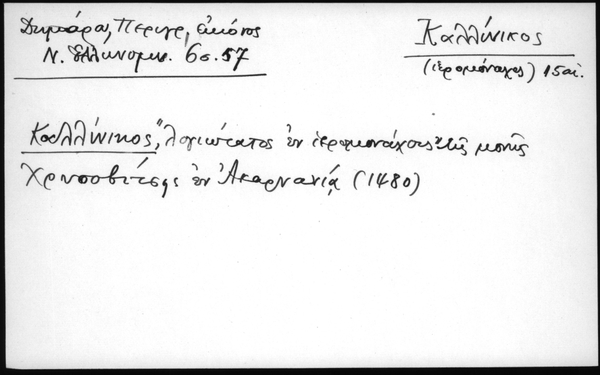 Δημαρᾶ, Περιγρ. εἰκόνος
Ν. Ἑλληνομν. 6σ. 57
Καλλίνικος
(ἱερομόναχος) 15 αἰ.
Καλλίνικος, "λογιώτατος ἐν ἱερομονάχοις" τῆς μονῆς
Χρυσοβίτσης ἐν Ἀκαρνανίᾳ (1480)